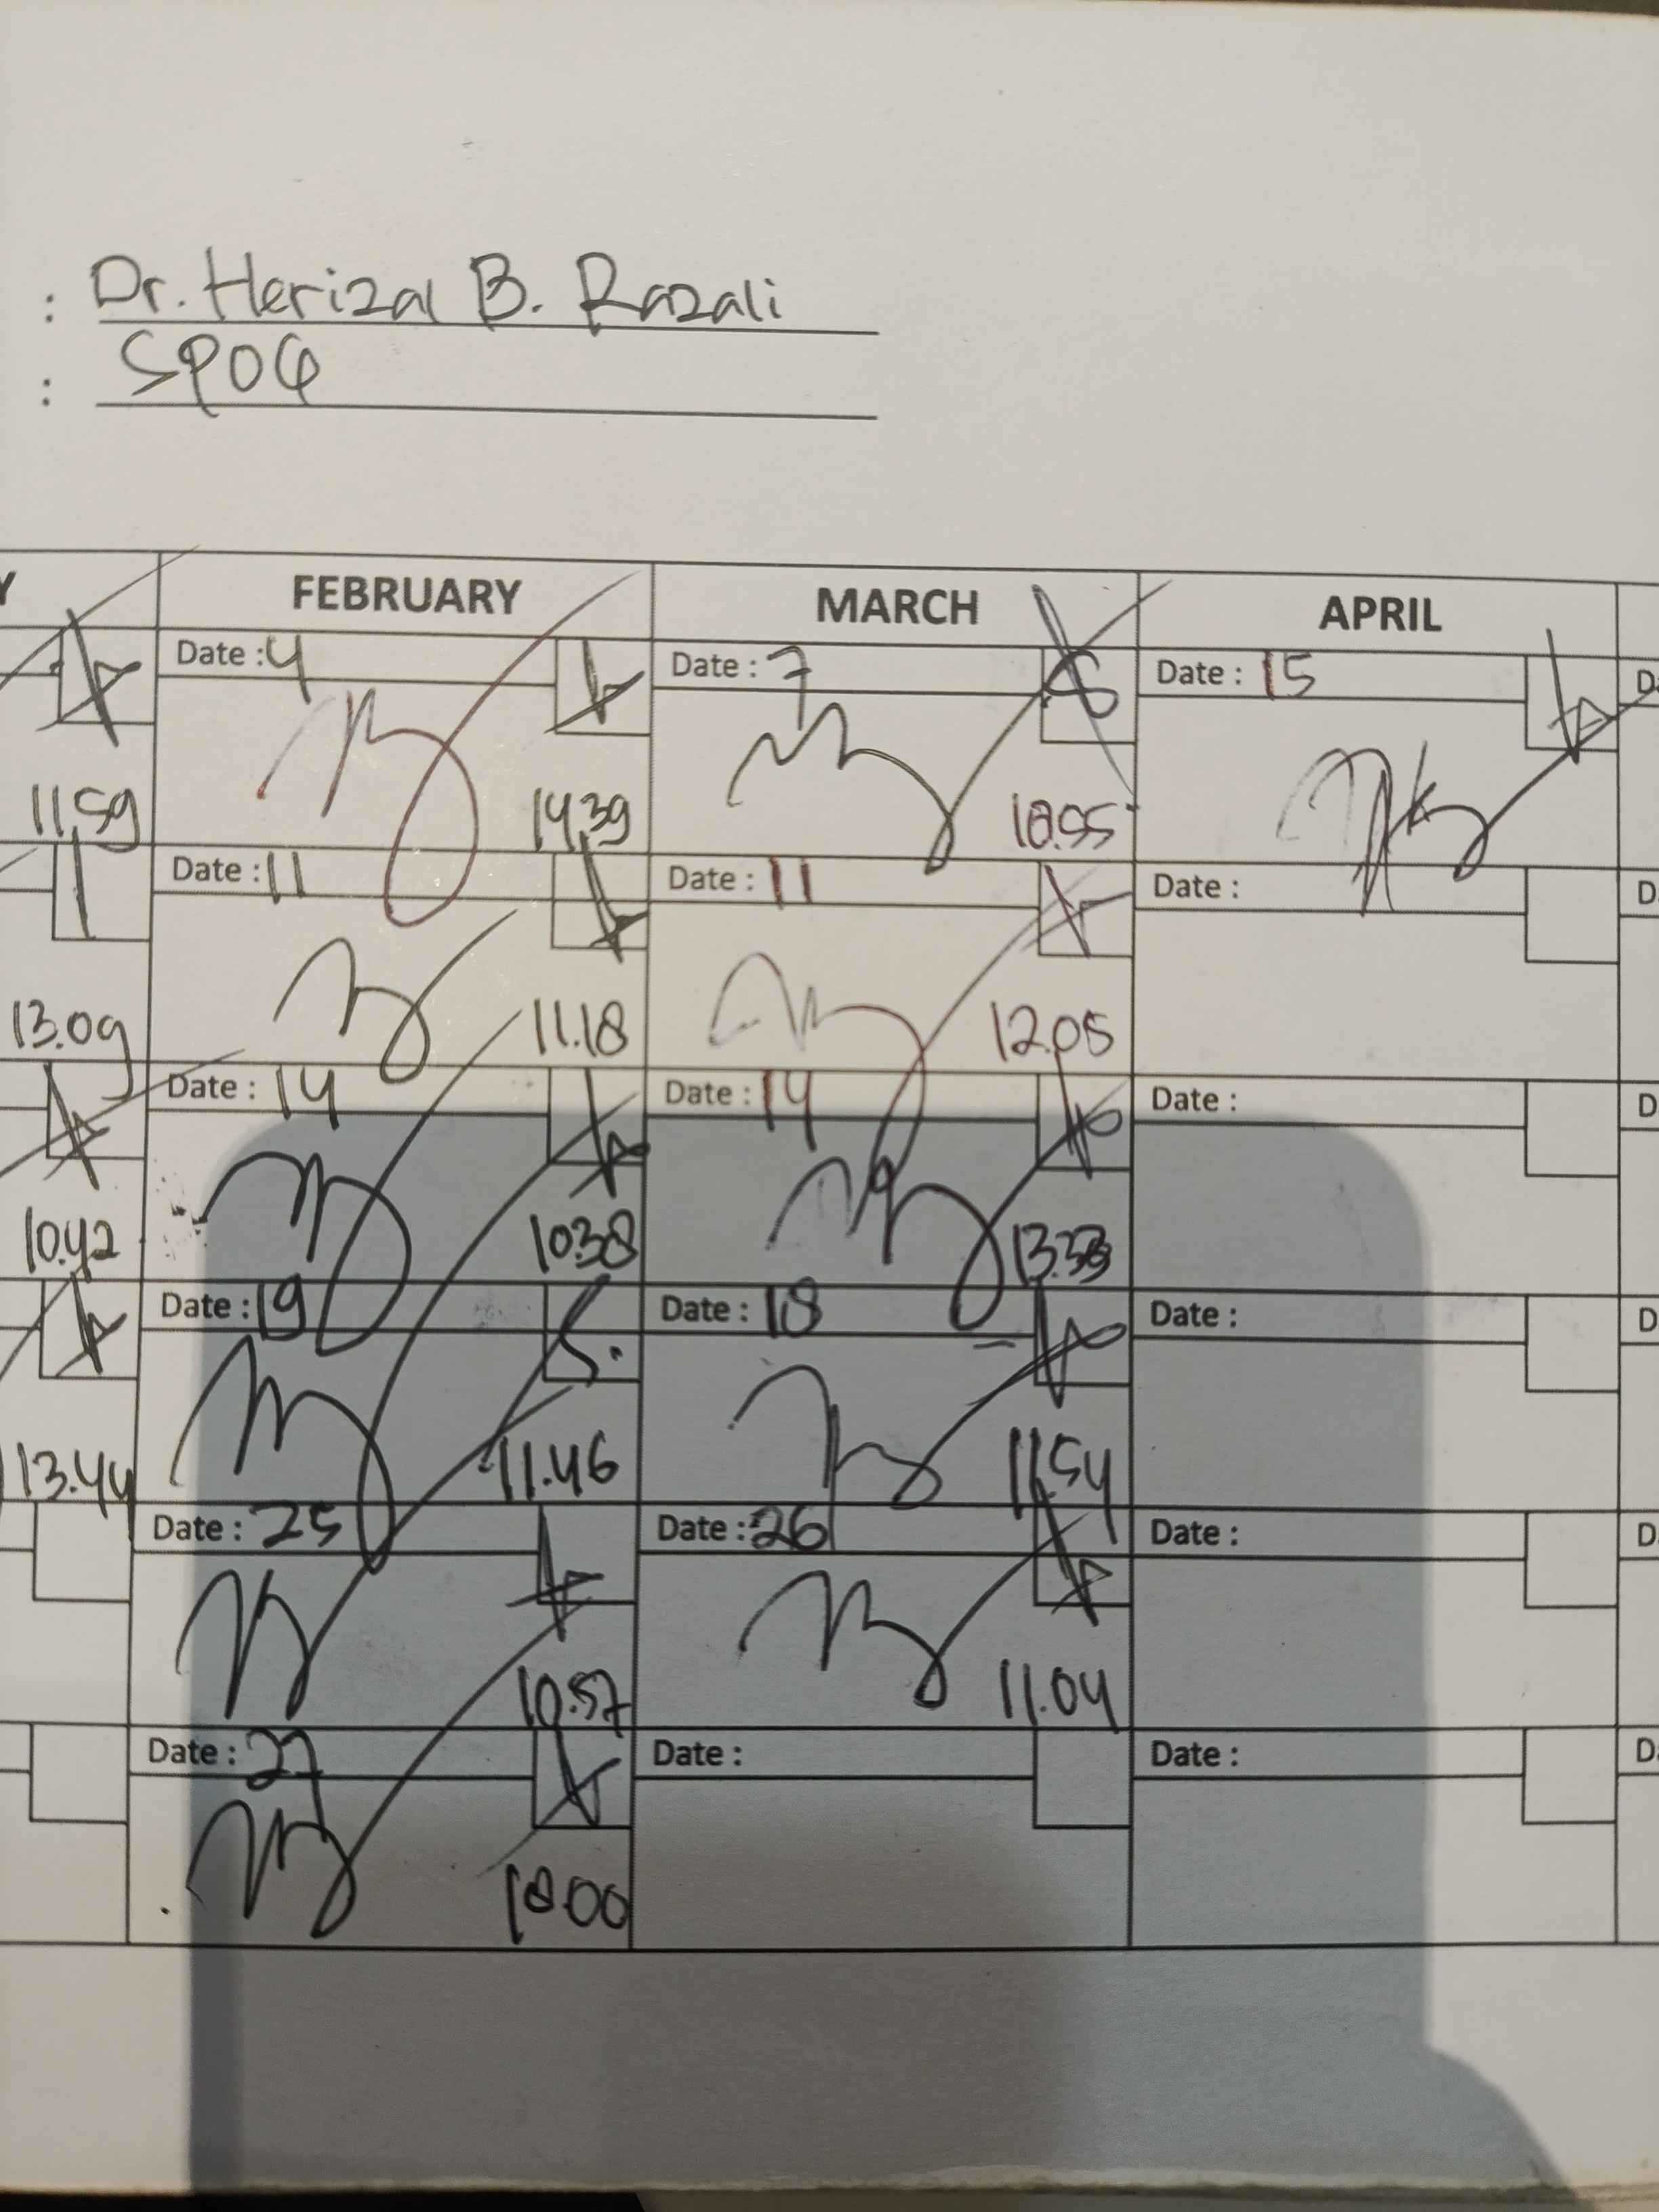 : Dr. Herizal B. Razali
: SPOG
Y FEBRUARY MARCH APRIL
Date : 4 Date : 7 Date : 15
11.59 14.39
Date : 11 Date : 11 Date :
13.09 11.18 12.05
Date : 14 Date : 14 Date :
10.42 10.38 13.33
Date : 19 Date : 18 Date :
13.44 11.46 11.54
Date : 25 Date : 26 Date :
10.57 11.04
Date : 27 Date : Date :